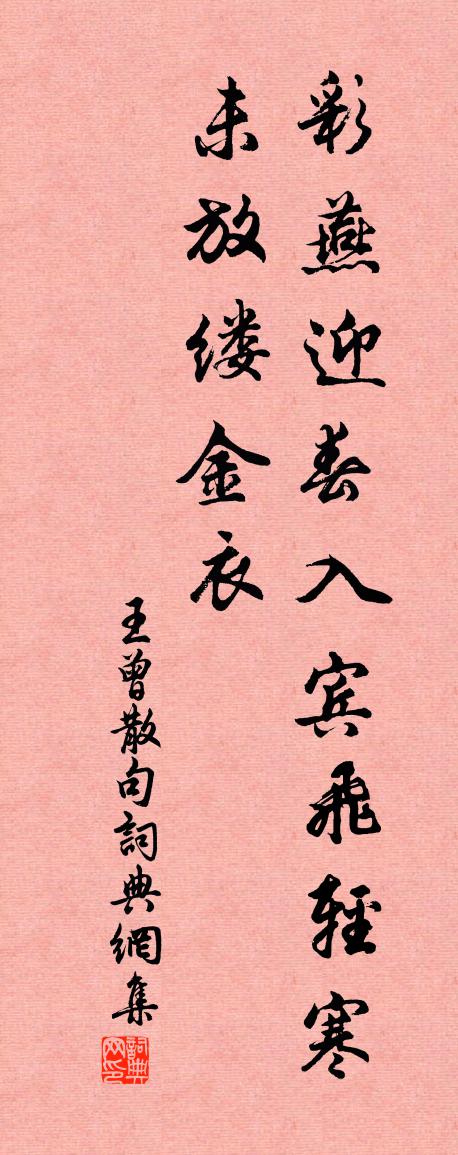 彩燕迎春入宾飞轻寒
未放缕金衣
王曾散句詞典網集
詞典网印